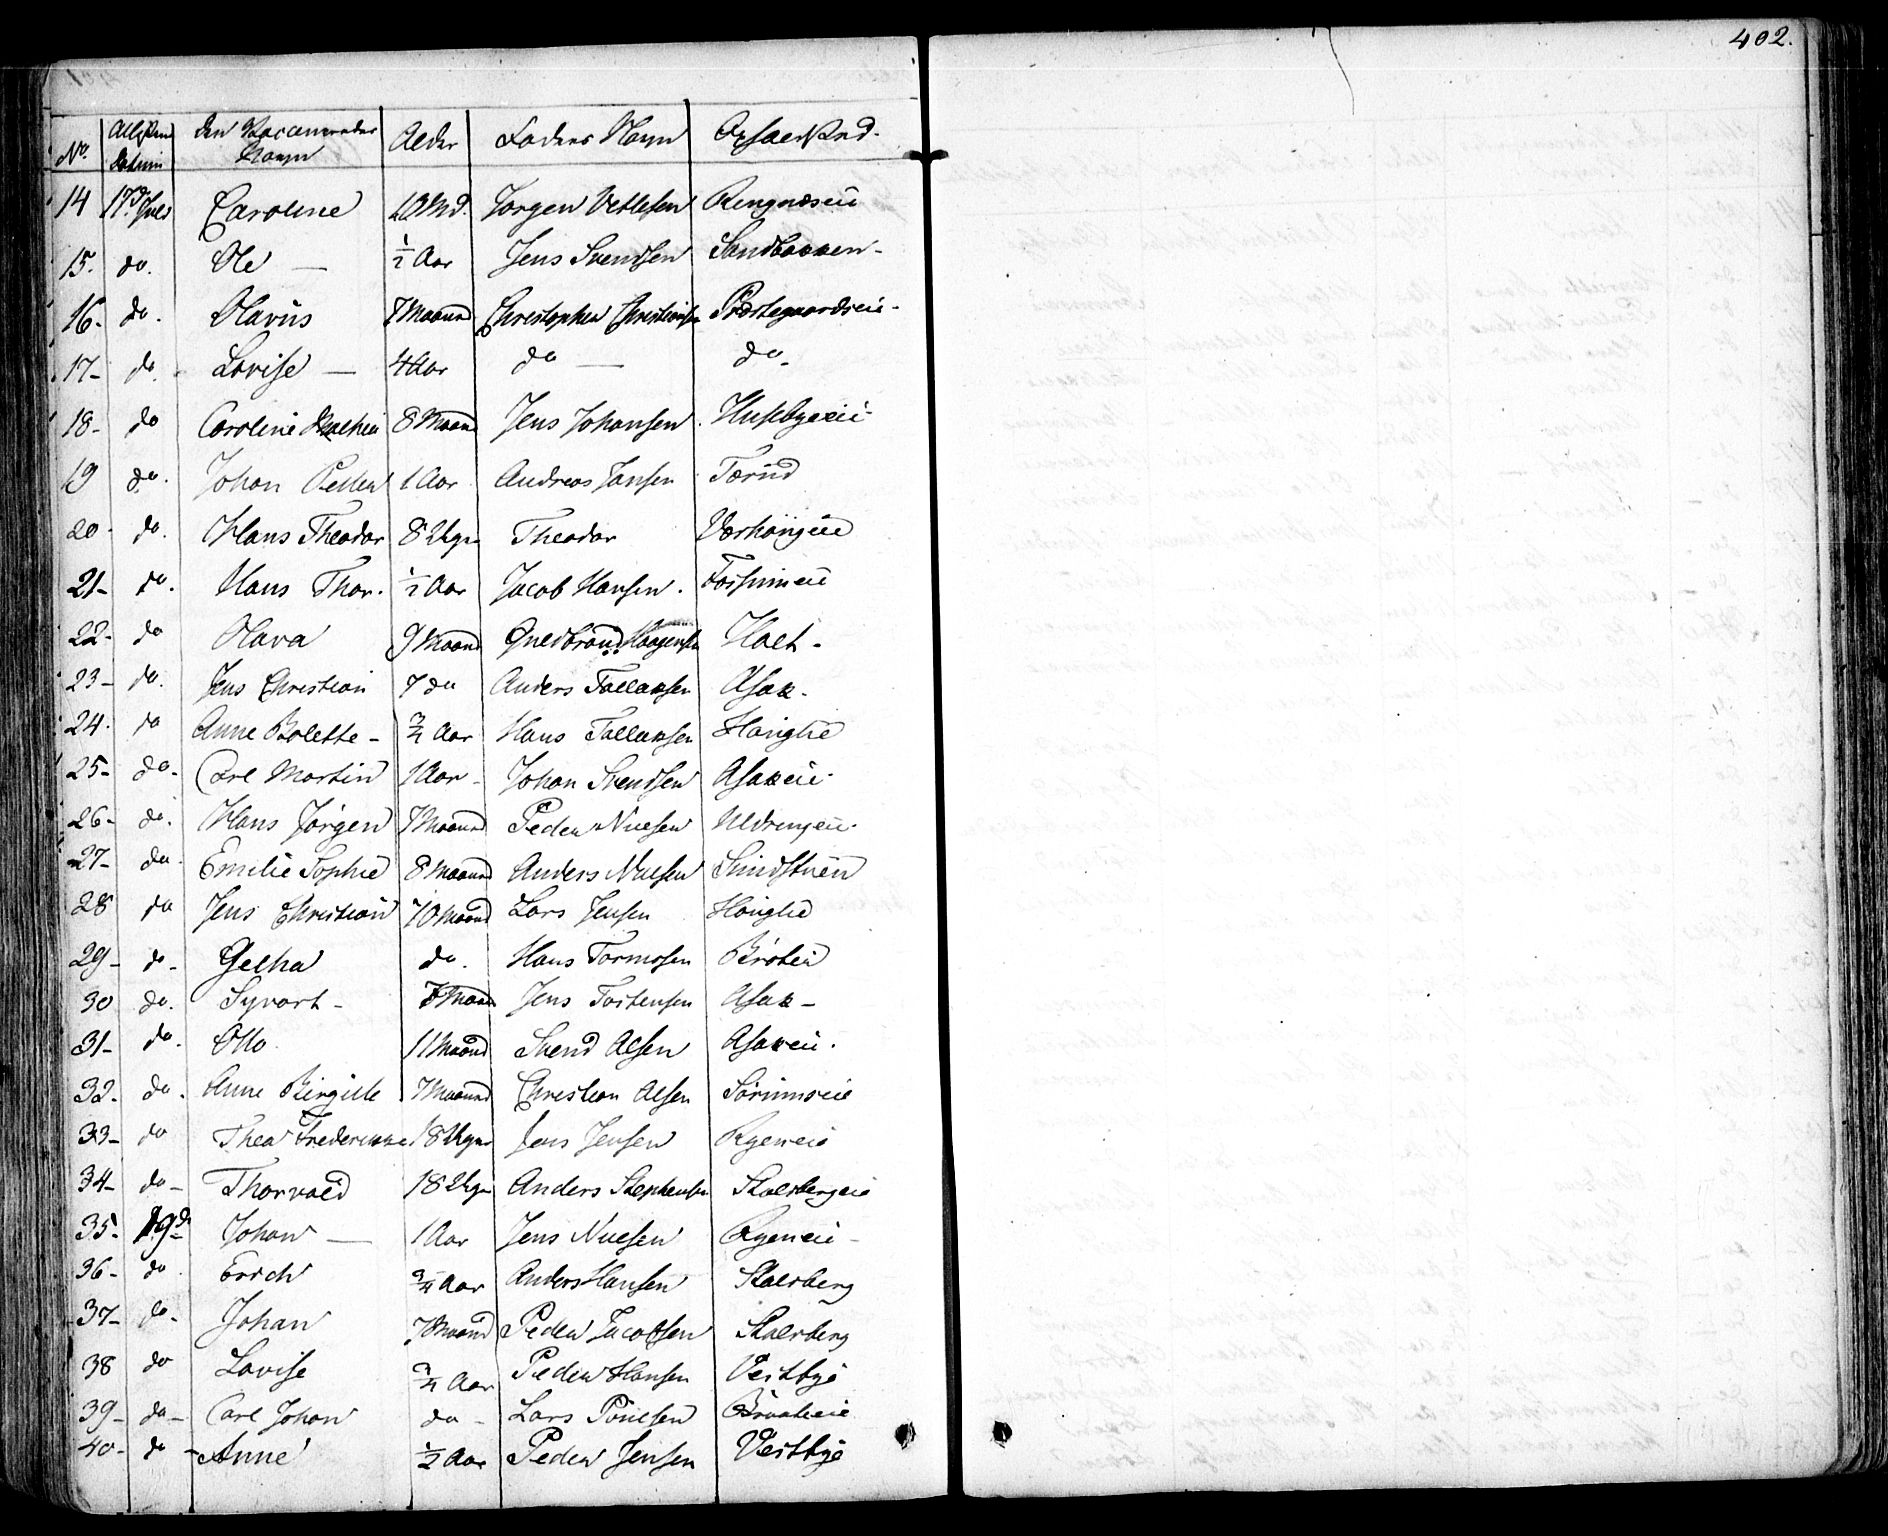 402.
No. Attesten Datum den Vaccineredes Navn Alder Faders Navn Opholdssted
14 17d Juli Caroline 10 Md. Jørgen Vetlesen Rengnæseie
15. do. Ole — ½ Aar Jens Svendsen Sandbakken -
16- do. Olavus 7 Maaned Christopher Christiansen Præstegaardseie -
17- do. Lovise — 4 Aar do — do -
18- do Caroline Mathea 8 Maaned Jens Johansen Husebyeeie
19 do. Johan Peder 1 Aar Andreas Jansen Tærud
20- do. Hans Theodor 8 Uger Theodor
21- do. Hans Thor. ½ Aar Jacob Hansen.
22- do Olava 9 Maaned Guldbrand Haagensen Holt -
23- do. Jens Christian 7 do Anders Tollaksen Asak -
24. do Anne Bolette - ¾ Aar Hans Tollaksen Hauglie
25- do - Carl Martin 1 Aar - Johan Svendsen Asakeie -
26- do. Hans Jørgen 7 Maaned Peder Nielsen
27- do. Emilie Sophie 8 Maaned Anders Nielsen Smidstuen
28 do Jens Christian 10 Maaned Lars Jensen Hauglie
29- do - Gelha do. Hans Tormosen Bråtein
30 do. Syvert - 7 Maaned Jens Tostensen Asak -
31- do. Otto 11 Maaned Svend Olsen Asakeie.
32- do. Anne Birgitte 7 Maaned Christian Olsen Sørumseie
33- do Thea Frederikke 18 Uger Jens Jensen Ryeneie
34- do - Thorvald 18 Uger Anders Stephensen Stalsbergeie
35- 19de Johan — 1 Aar Jens Nielsen Ryeneie -
36- do Erich ¾ Aar Anders Hansen Stalsberg
37- do - Johan 7 Maaned Peder Jacobsen Stalsberg
38 do Lovise ¾ Aar Peder Hansen Vestbye
39- do - Carl Johan do - Lars Poulsen Braateeie
40- do - Anne ½ Aar Peder Jensen Vestbye